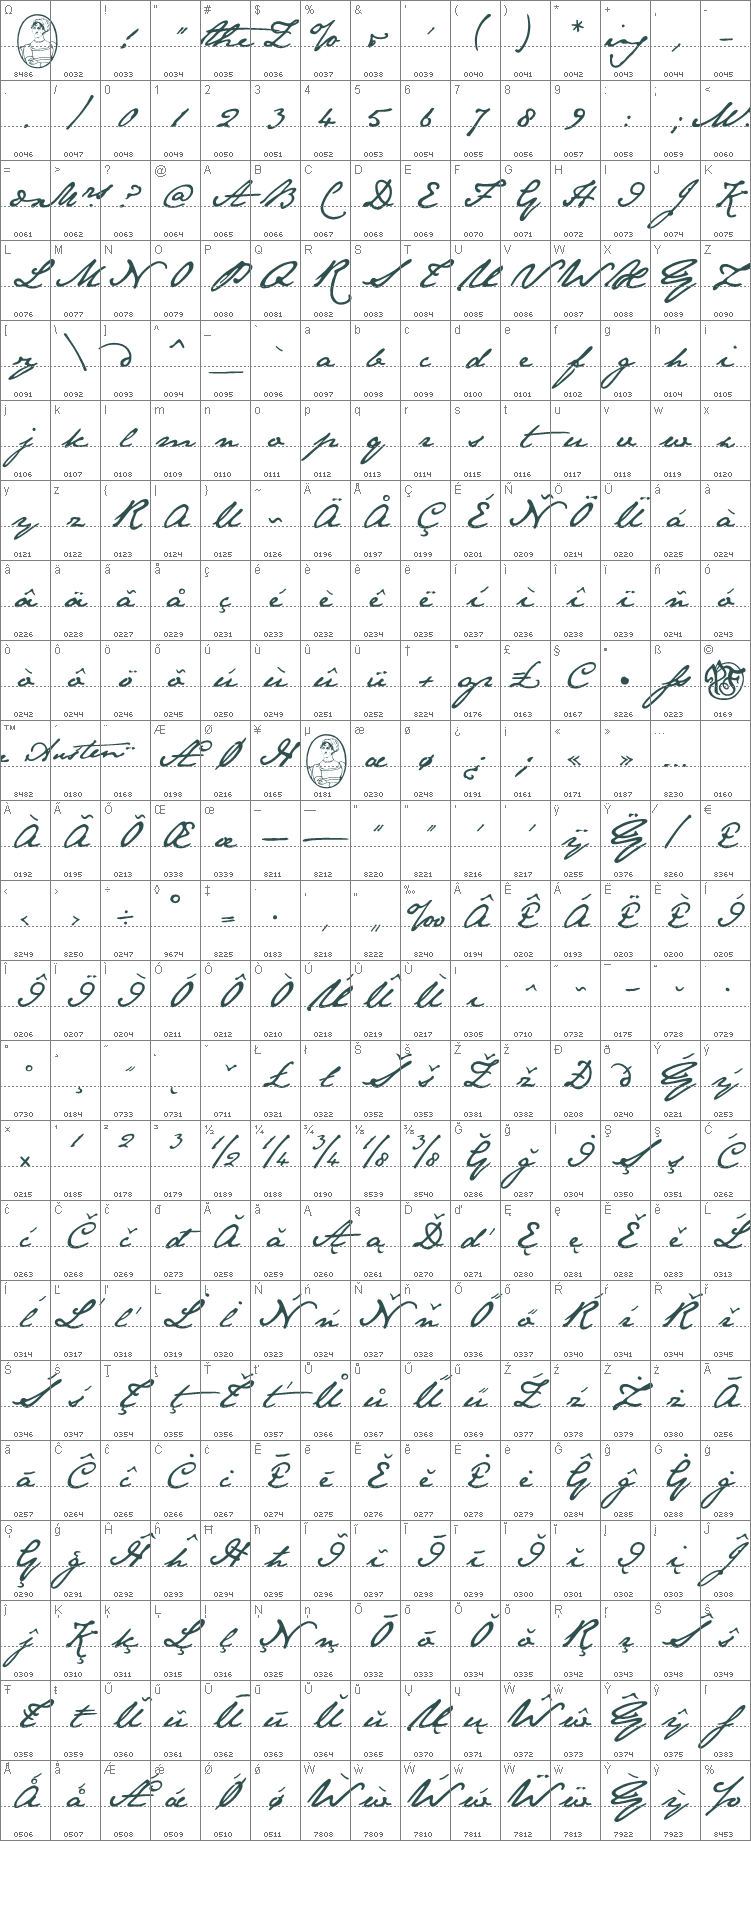 Ω ! " # $ % & ' ( ) * + , -
! " the % & ' ( ) * ing , -
8486 0032 0033 0034 0035 0036 0037 0038 0039 0040 0041 0042 0043 0044 0045
. / 0 1 2 3 4 5 6 7 8 9 : ; <
. / 0 1 2 3 4 5 6 7 8 9 : ; M.
0046 0047 0048 0049 0050 0051 0052 0053 0054 0055 0056 0057 0058 0059 0060
= > ? @ A B C D E F G H I J K
on Mrs ? @ A B C D E F G H I J K
0061 0062 0063 0064 0065 0066 0067 0068 0069 0070 0071 0072 0073 0074 0075
L M N O P Q R S T U V W X Y Z
L M N O P Q R S T U V W X Y Z
0076 0077 0078 0079 0080 0081 0082 0083 0084 0085 0086 0087 0088 0089 0090
[ \ ] ^ _ ` a b c d e f g h i
\ ^ _ ` a b c d e f g h i
0091 0092 0093 0094 0095 0096 0097 0098 0099 0100 0101 0102 0103 0104 0105
j k l m n o p q r s t u v w x
j k l m n o p q r s t u v w x
0106 0107 0108 0109 0110 0111 0112 0113 0114 0115 0116 0117 0118 0119 0120
y z { | } ~ Ä Å Ç É Ñ Ö Ü á à
y z R A U ~ Ä Å Ç É Ñ Ö Ü á à
0121 0122 0123 0124 0125 0126 0196 0197 0199 0201 0209 0214 0220 0225 0224
â ä ã å ç é è ê ë í ì î ï ñ ó
â ä ã å ç é è ê ë í ì î ï ñ ó
0226 0228 0227 0229 0231 0233 0232 0234 0235 0237 0236 0238 0239 0241 0243
ò ô ö õ ú ù û ü † ° £ § • ß ©
ò ô ö õ ú ù û ü + £ C • ß PF
0242 0244 0246 0245 0250 0249 0251 0252 8224 0176 0163 0167 8226 0223 0169
™ ´ ¨ Æ Ø ¥ µ æ ø ¿ ¡ « » …
Austen Æ Ø H æ ø ¿ ¡ « » …
8482 0180 0168 0198 0216 0165 0181 0230 0248 0191 0161 0171 0187 8230 0160
À Ã Õ Œ œ – — " " ' ' ÿ Ÿ ⁄ €
À Ã Õ Œ œ – — " " ' ' ÿ Ÿ /
0192 0195 0213 0338 0339 8211 8212 8220 8221 8216 8217 0255 0376 8260 8364
‹ › ÷ ◊ ‡ · ‚ „ ‰ Â Ê Á Ë È Í
‹ › ÷ ° · , „ ‰ Â Ê Á Ë È Í
8249 8250 0247 9674 8225 0183 8218 8222 8240 0194 0202 0193 0203 0200 0205
Î Ï Ì Ó Ô Ò Ú Û Ù ı ˆ ˜ ¯ ˘ ˙
Î Ï Ì Ó Ô Ò Ú Û Ù ı ˆ ˜ ¯ ˘ ˙
0206 0207 0204 0211 0212 0210 0218 0219 0217 0305 0710 0732 0175 0728 0729
˚ ¸ ˝ ˛ ˇ Ł ł Š š Ž ž Ð ð Ý ý
˚ ¸ ˝ ˛ ˇ Ł ł Š š Ž ž Ð ð Ý ý
0730 0184 0733 0731 0711 0321 0322 0352 0353 0381 0382 0208 0240 0221 0253
× ¹ ² ³ ½ ¼ ¾ ⅛ ⅜ Ğ ğ İ Ş ş Ć
x 1 2 3 1/2 1/4 3/4 1/8 3/8 Ğ ğ İ Ş ş Ć
0215 0185 0178 0179 0189 0188 0190 8539 8540 0286 0287 0304 0350 0351 0262
ć Č č đ Ă ă Ą ą Ď ď Ę ę Ě ě Ĺ
ć Č č đ Ă ă Ą ą Ď ď Ę ę Ě ě Ĺ
0263 0268 0269 0273 0258 0259 0260 0261 0270 0271 0280 0281 0282 0283 0313
ĺ Ľ ľ Ŀ ŀ Ń ń Ň ň Ő ő Ŕ ŕ Ř ř
ĺ Ľ ľ Ŀ ŀ Ń ń Ň ň Ő ő Ŕ ŕ Ř ř
0314 0317 0318 0319 0320 0323 0324 0327 0328 0336 0337 0340 0341 0344 0345
Ś ś Ţ ţ Ť ť Ů ů Ű ű Ź ź Ż ż Ā
Ś ś Ţ ţ Ť ť Ů ů Ű ű Ź ź Ż ż Ā
0346 0347 0354 0355 0356 0357 0366 0367 0368 0369 0377 0378 0379 0380 0256
ā Ĉ ĉ Ċ ċ Ē ē Ĕ ĕ Ė ė Ĝ ĝ Ġ ġ
ā Ĉ ĉ Ċ ċ Ē ē Ĕ ĕ Ė ė Ĝ ĝ Ġ ġ
0257 0264 0265 0266 0267 0274 0275 0276 0277 0278 0279 0284 0285 0288 0289
Ģ ģ Ĥ ĥ Ħ ħ Ĩ ĩ Ī ī Ĭ ĭ Į į Ĵ
Ģ ģ Ĥ ĥ Ħ ħ Ĩ ĩ Ī ī Ĭ ĭ Į į Ĵ
0290 0291 0292 0293 0294 0295 0296 0297 0298 0299 0300 0301 0302 0303 0308
ĵ Ķ ķ Ļ ļ Ņ ņ Ō ō Ŏ ŏ Ŗ ŗ Ŝ ŝ
ĵ Ķ ķ Ļ ļ Ņ ņ Ō ō Ŏ ŏ Ŗ ŗ Ŝ ŝ
0309 0310 0311 0315 0316 0325 0326 0332 0333 0334 0335 0342 0343 0348 0349
Ŧ ŧ Ũ ũ Ū ū Ŭ ŭ Ų ų Ŵ ŵ Ŷ ŷ ſ
Ŧ ŧ Ũ ũ Ū ū Ŭ ŭ Ų ų Ŵ ŵ Ŷ ŷ ſ
0358 0359 0360 0361 0362 0363 0364 0365 0370 0371 0372 0373 0374 0375 0383
Ǻ ǻ Ǽ ǽ Ǿ ǿ Ẁ ẁ Ẃ ẃ Ẅ ẅ Ỳ ỳ ℅
Ǻ ǻ Ǽ ǽ Ǿ ǿ Ẁ ẁ Ẃ ẃ Ẅ ẅ Ỳ ỳ ℅
0506 0507 0508 0509 0510 0511 7808 7809 7810 7811 7812 7813 7922 7923 8453